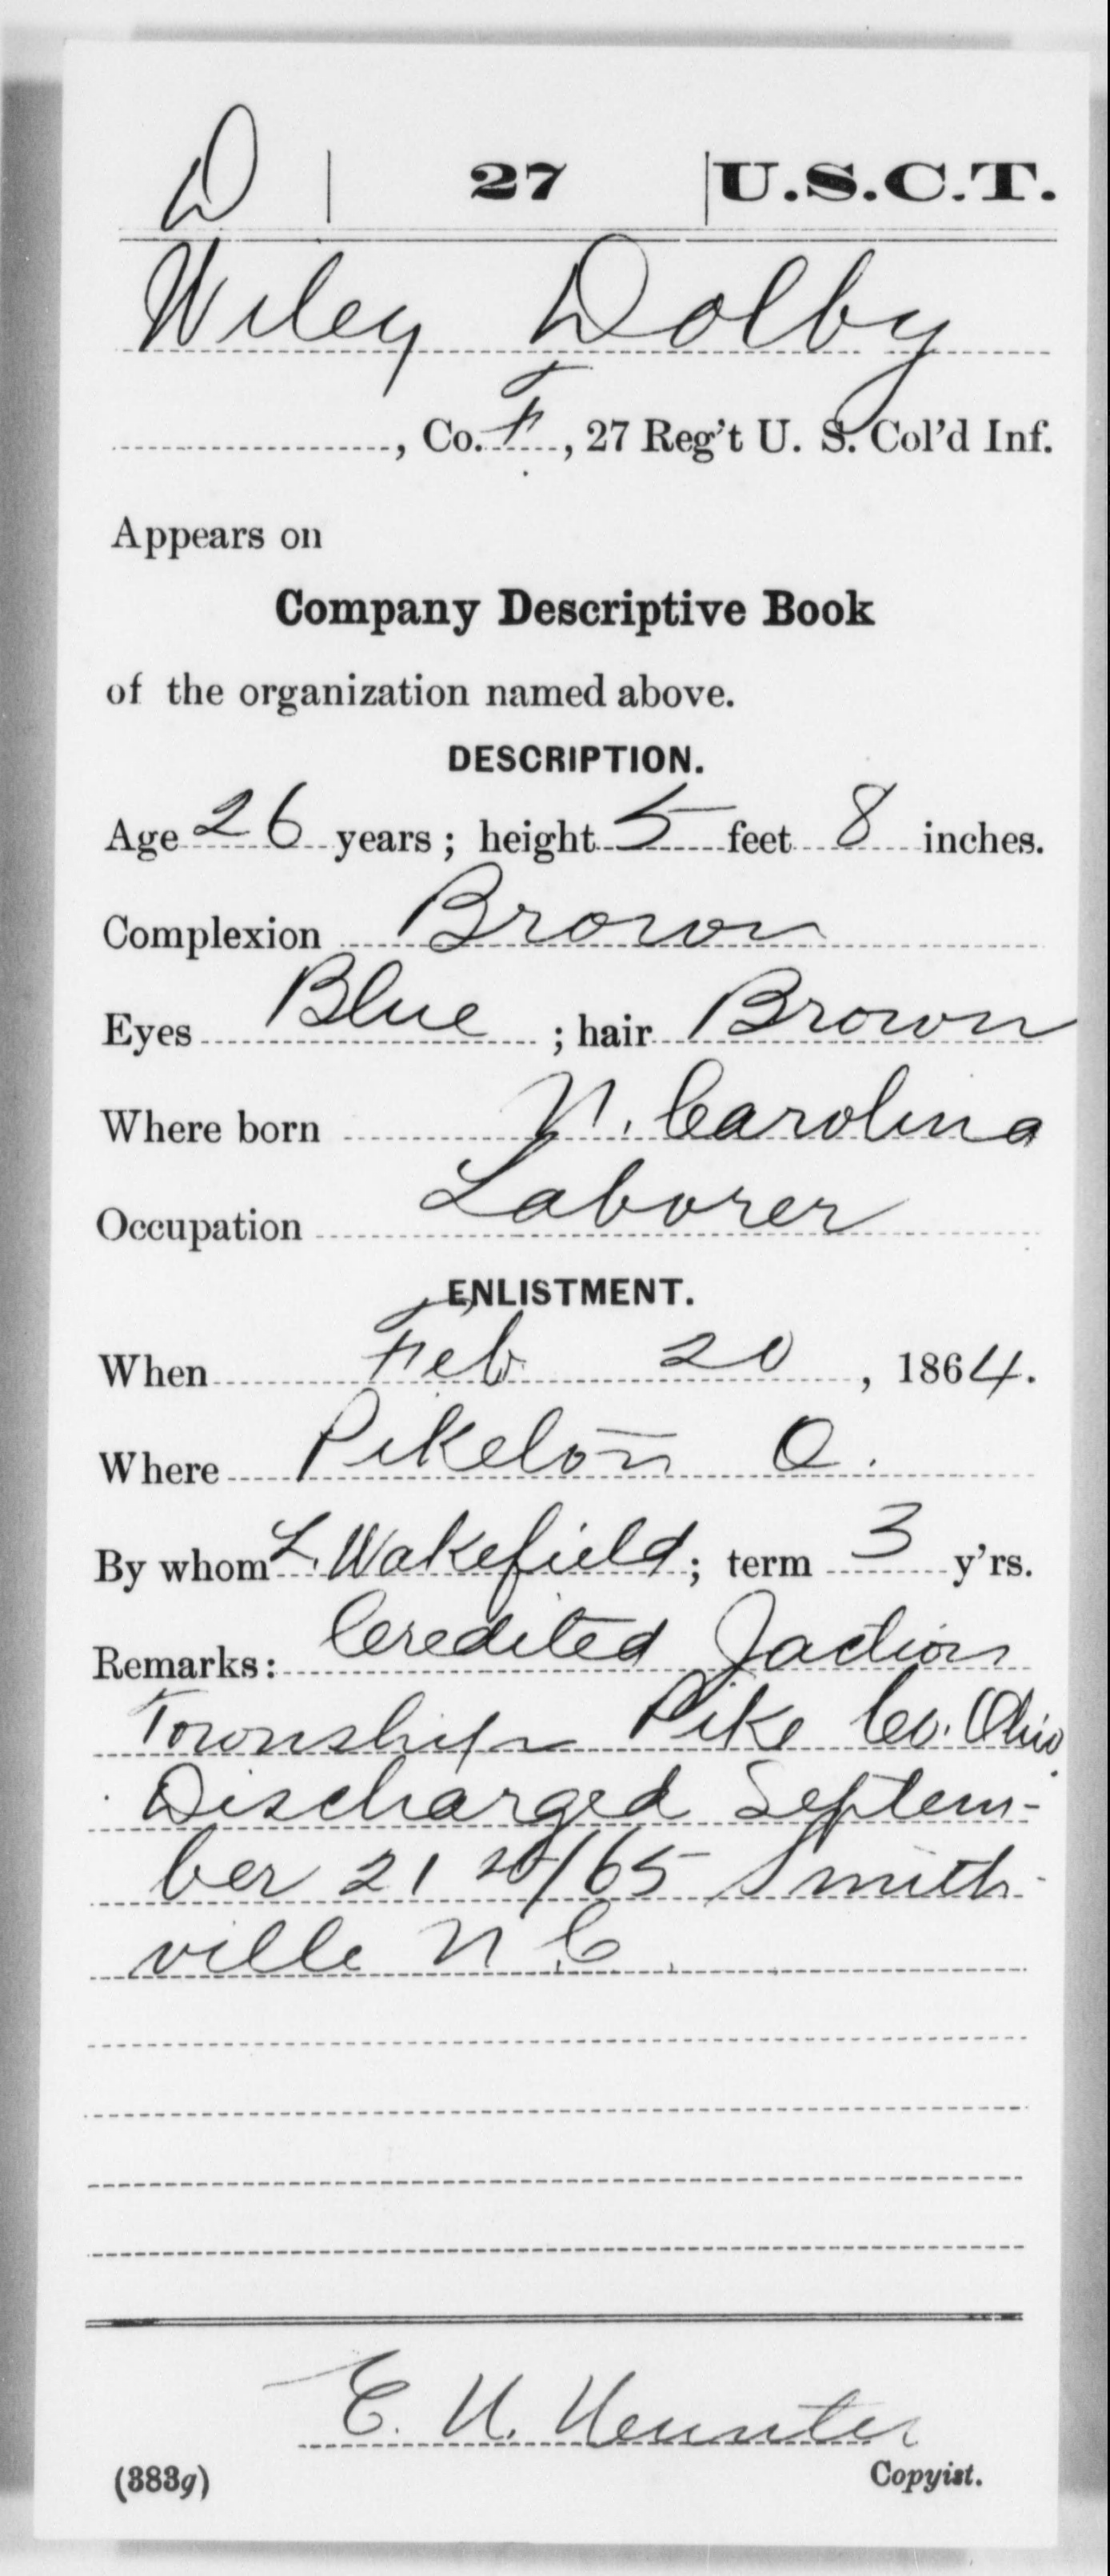 D | 27 | U.S.C.T.
Wiley Dolby
, Co. F, 27 Reg't U. S. Col'd Inf.
Appears on
Company Descriptive Book
of the organization named above.
DESCRIPTION.
Age 26 years; height 5 feet 8 inches.
Complexion Brown
Eyes Blue; hair Brown
Where born N. Carolina
Occupation Laborer
ENLISTMENT.
When Feb 20, 1864.
Where Piketon O.
By whom L. Wakefield; term 3 y'rs.
Remarks: Credited
Township Pike Co. Ohio
Discharged Septem-
ber 21 /65 Smith-
ville N C
E.
Copyist.
(383g)